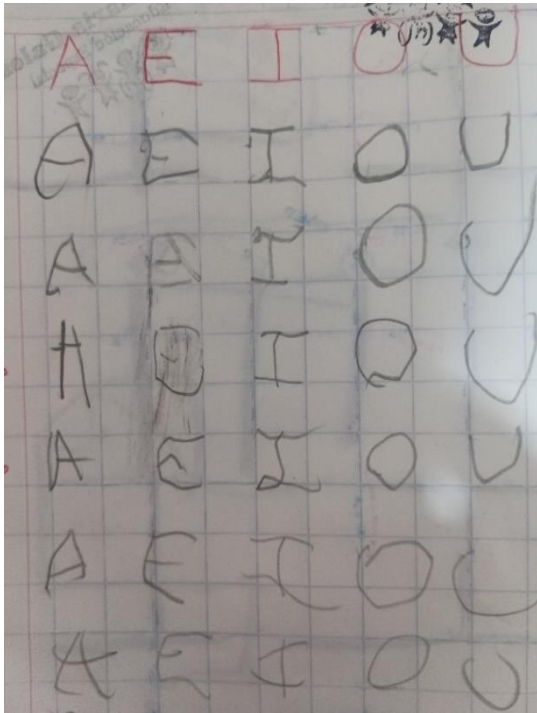 A E I O U
A E I O U
A I O U
A I O U
A E I O U
A E I O U
A E I O U